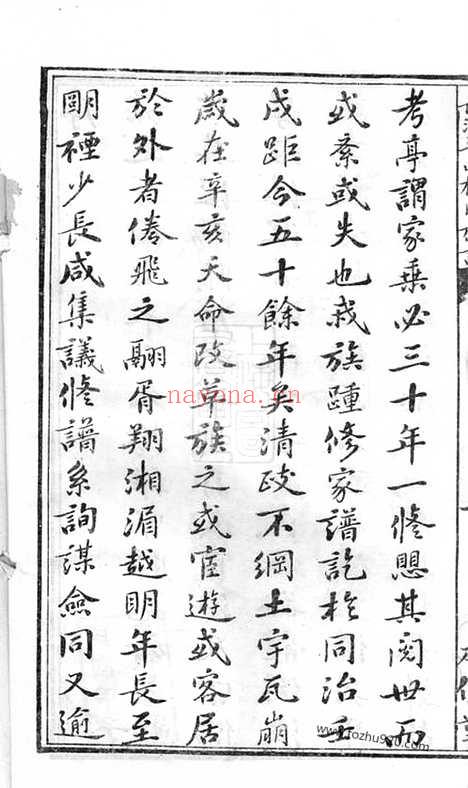 考亭謂家乗必三十年一修懲其閱世而
或紊或失也我族踵修家譜訖於同治壬
戌距今五十餘年矣清政不綱土宇瓦崩
歲在辛亥天命改革族之或宦遊或客居
於外者倦飛之翮胥翔湘湄越明年長至
朙禋少長咸集議修譜系詢謀僉同又逾
nayona.cn
www.fozhu920.com